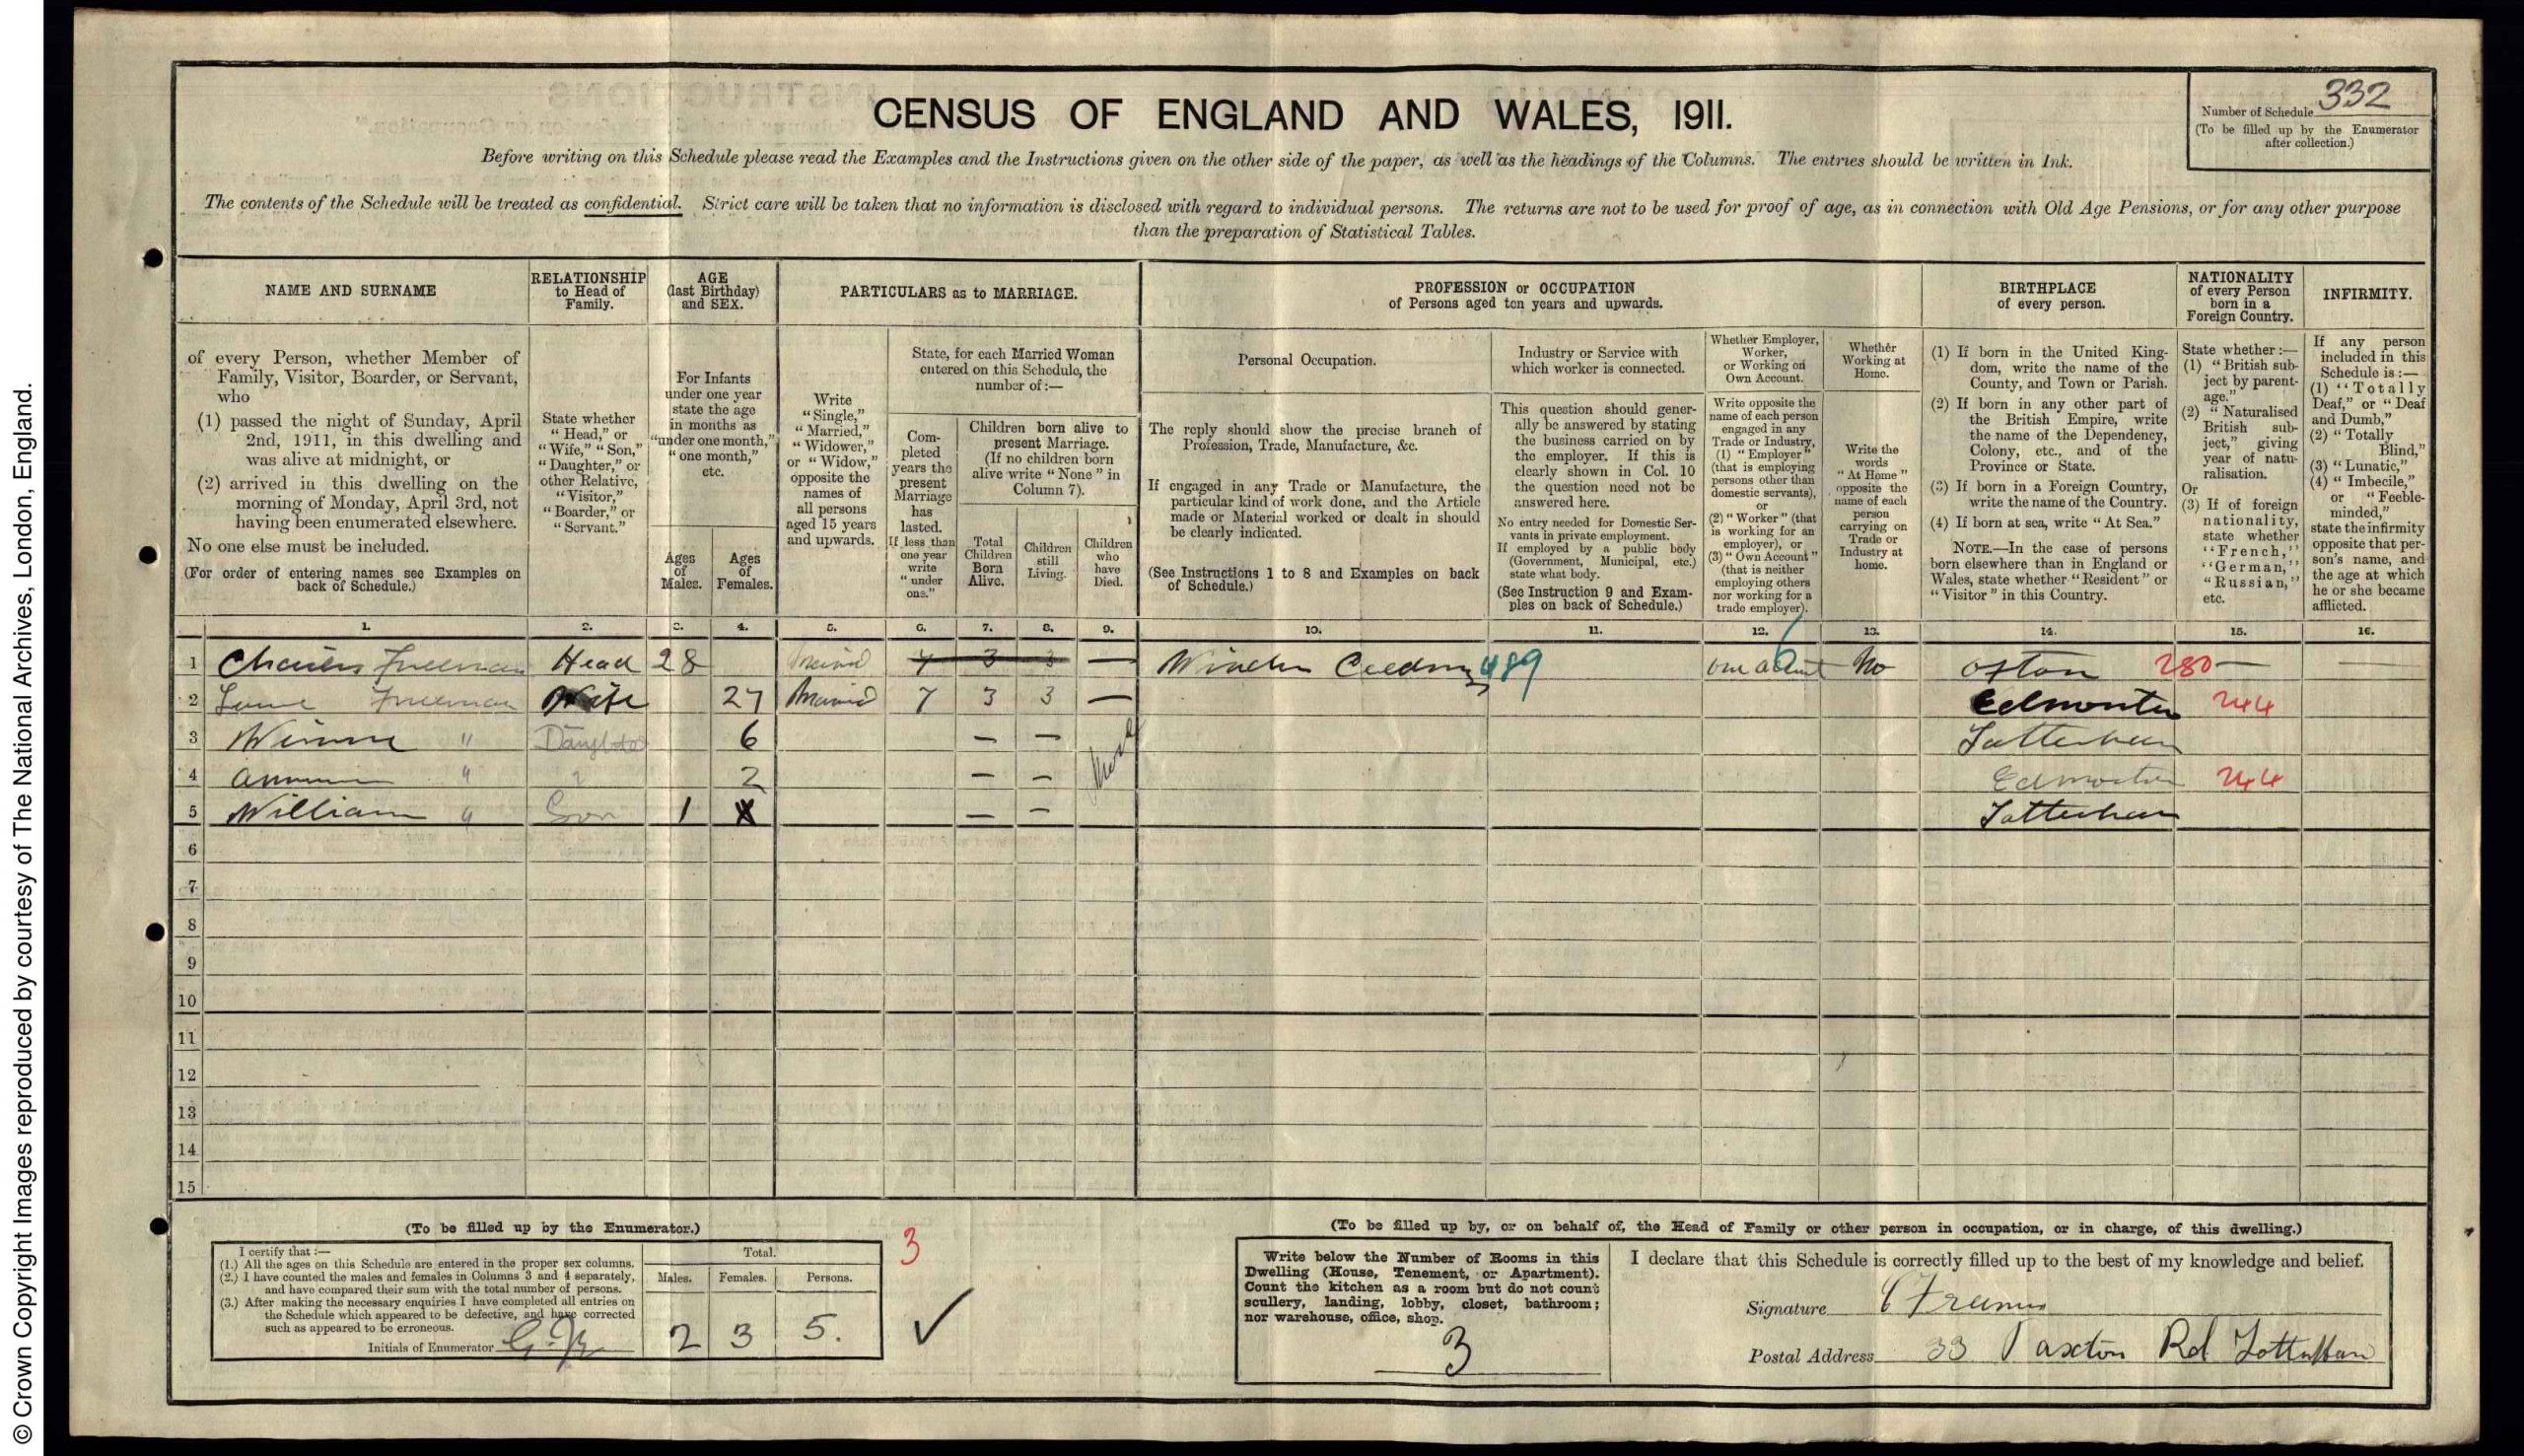 332
Number of Schedule
(To be filled up by the Enumerator
after collection.)
CENSUS OF ENGLAND AND WALES, 1911.
Before writing on this Schedule please read the Examples and the Instructions given on the other side of the paper, as well as the headings of the Columns. The entries should be written in Ink.
The contents of the Schedule will be treated as confidential. Strict care will be taken that no information is disclosed with regard to individual persons. The returns are not to be used for proof of age, as in connection with Old Age Pensions, or for any other purpose
than the preparation of Statistical Tables.
NAME AND SURNAME
of every Person, whether Member of
Family, Visitor, Boarder, or Servant,
who
(1) passed the night of Sunday, April
2nd, 1911, in this dwelling and
was alive at midnight, or
(2) arrived in this dwelling on the
morning of Monday, April 3rd, not
having been enumerated elsewhere.
No one else must be included.
(For order of entering names see Examples on
back of Schedule.)
RELATIONSHIP
to Head of
Family.
State whether
"Head," or
"Wife," "Son,"
"Daughter," or
other Relative,
"Visitor,"
"Boarder," or
"Servant."
AGE
(last Birthday)
and SEX.
For Infants
under one year
state the age
in months as
"under one month,"
"one month,"
etc.
Ages
of
Males.
Ages
of
Females.
PARTICULARS as to MARRIAGE.
Write
"Single,"
"Married,"
"Widower,"
or "Widow,"
opposite the
names of
all persons
aged 15 years
and upwards.
State, for each Married Woman
entered on this Schedule, the
number of:—
Com-
pleted
years the
present
Marriage
has
lasted.
If less than
one year
write
"under
one."
Children born alive to
present Marriage.
(If no children born
alive write "None" in
Column 7).
Total
Children
Born
Alive.
Children
still
Living.
Children
who
have
Died.
PROFESSION or OCCUPATION
of Persons aged ten years and upwards.
Personal Occupation.
The reply should show the precise branch of
Profession, Trade, Manufacture, &c.
If engaged in any Trade or Manufacture, the
particular kind of work done, and the Article
made or Material worked or dealt in should
be clearly indicated.
(See Instructions 1 to 8 and Examples on back
of Schedule.)
Industry or Service with
which worker is connected.
This question should gener-
ally be answered by stating
the business carried on by
the employer. If this is
clearly shown in Col. 10
the question need not be
answered here.
No entry needed for Domestic Ser-
vants in private employment.
If employed by a public body
(Government, Municipal, etc.)
state what body.
(See Instruction 9 and Exam-
ples on back of Schedule.)
Whether Employer,
Worker,
or Working on
Own Account.
Write opposite the
name of each person
engaged in any
Trade or Industry,
(1) "Employer"
(that is employing
persons other than
domestic servants),
or
(2) "Worker" (that
is working for an
employer), or
(3) "Own Account"
(that is neither
employing others
nor working for a
trade employer).
Whether
Working at
Home.
Write the
words
"At Home"
opposite the
name of each
person
carrying on
Trade or
Industry at
home.
BIRTHPLACE
of every person.
(1) If born in the United King-
dom, write the name of the
County, and Town or Parish.
(2) If born in any other part of
the British Empire, write
the name of the Dependency,
Colony, etc., and of the
Province or State.
(3) If born in a Foreign Country,
write the name of the Country.
(4) If born at sea, write "At Sea."
NOTE.—In the case of persons
born elsewhere than in England or
Wales, state whether "Resident" or
"Visitor" in this Country.
NATIONALITY
of every Person
born in a
Foreign Country.
State whether:—
(1) "British sub-
ject by parent-
age."
(2) "Naturalised
British sub-
ject," giving
year of natu-
ralisation.
Or
(3) If of foreign
nationality,
state whether
"French,"
"German,"
"Russian,"
etc.
INFIRMITY.
If any person
included in this
Schedule is:—
(1) "Totally
Deaf," or "Deaf
and Dumb,"
(2) "Totally
Blind,"
(3) "Lunatic,"
(4) "Imbecile,"
or "Feeble-
minded,"
state the infirmity
opposite that per-
son's name, and
the age at which
he or she became
afflicted.
1. 2. 3. 4. 5. 6. 7. 8. 9. 10. 11. 12. 13. 14. 15. 16.
1 Charles Freeman Head 28 7 3 3 — 489 No 280 — —
2 Freeman Wife 27 Married 7 3 3 — Edmonton 244
3 " Daughter 6 — —
4 " 2 — — Edmonton 244
5 William " Son 1 — —
6
7
8
9
10
11
12
13
14
15
(To be filled up by the Enumerator.)
I certify that:—
(1.) All the ages on this Schedule are entered in the proper sex columns.
(2.) I have counted the males and females in Columns 3 and 4 separately,
and have compared their sum with the total number of persons.
(3.) After making the necessary enquiries I have completed all entries on
the Schedule which appeared to be defective, and have corrected
such as appeared to be erroneous.
Initials of Enumerator
Total.
Males. Females. Persons.
2 3 5.
3
(To be filled up by, or on behalf of, the Head of Family or other person in occupation, or in charge, of this dwelling.)
Write below the Number of Rooms in this
Dwelling (House, Tenement, or Apartment).
Count the kitchen as a room but do not count
scullery, landing, lobby, closet, bathroom;
nor warehouse, office, shop.
3
I declare that this Schedule is correctly filled up to the best of my knowledge and belief.
Signature
Postal Address 33 Paxton Rd Tottenham
© Crown Copyright Images reproduced by courtesy of The National Archives, London, England.